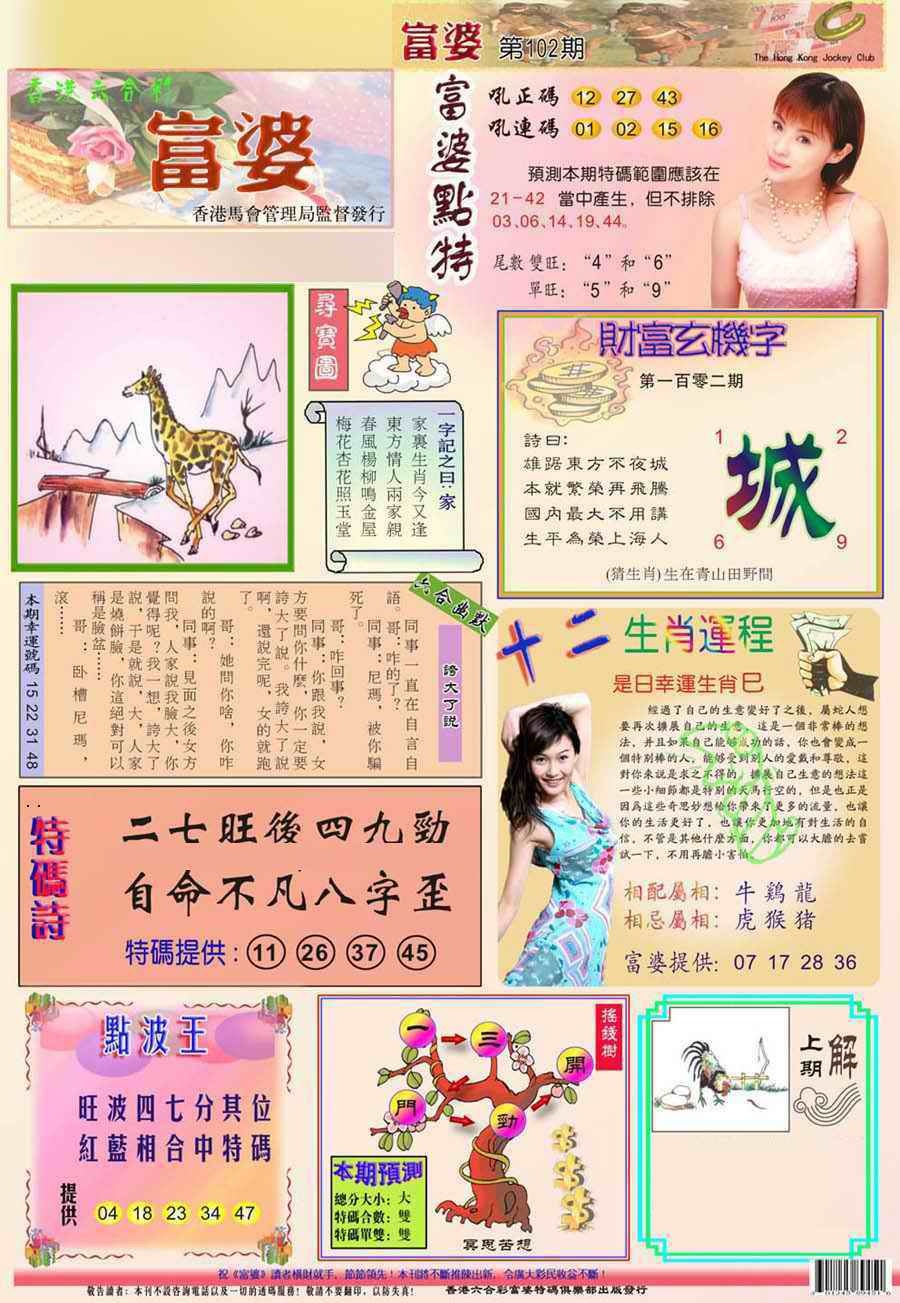 富婆 第102期
The Hong Kong Jockey Club
香港六合彩
富婆
香港馬會管理局監督發行
富婆點特
吼正碼 12 27 43
吼連碼 01 02 15 16
預測本期特碼範圍應該在
21-42 當中產生，但不排除
03、06、14、19、44。
尾數雙旺：“4”和“6”
單旺：“5”和“9”
尋寶圖
一字記之曰：家
家裏生肖今又逢
東方情人兩家親
春風楊柳鳴金屋
梅花杏花照玉堂
財富玄機字
第一百零二期
詩曰：
雄踞東方不夜城
本就繁榮再飛騰
國內最大不用講
生平為榮上海人
1 2
城
6 9
(猜生肖)生在青山田野間
六合幽默
誇大了説
同事一直在自言自
語。哥：咋的了？
同事：尼瑪，被你騙
死了。
哥：咋回事？
同事：你跟我説，女
方要問你什麽，你一定要
誇大了説。我誇大了説
啊，還説完呢，女的就跑
了。
哥：她問你啥，你咋
説的啊？
同事：見面之後女方
問我，人家説我臉大，你
覺得呢？我一想，誇大了
説，于是就説，大，人家
是燒餅臉，你這絕對可以
稱是臉盆……
哥：卧槽尼瑪，
滚……
本期幸運號碼 15 22 31 48
十二生肖運程
是日幸運生肖巳
經過了自己的生意變好了之後，屬蛇人想
要再次擴展自己的生意，這是一個非常棒的想
法，并且如果自己能够成功的話，你也會變成一
個特别棒的人，能够受到别人的愛戴和尊敬，這
對你來説是求之不得的，擴展自己生意的想法這
一些小細節都是特别的天馬行空的，但是也正是
因為這些奇思妙想給你帶來了更多的流量，也讓
你的生活更好了，也讓你更加地有對生活的自
信，不管是其他什麽方面，你都可以大膽的去嘗
試一下，不用再膽小害怕。
相配屬相：牛鷄龍
相忌屬相：虎猴猪
富婆提供：07 17 28 36
特碼詩
二七旺後四九勁
自命不凡八字歪
特碼提供：11 26 37 45
點波王
旺波四七分其位
紅藍相合中特碼
提供 04 18 23 34 47
搖錢樹
一 三 開
門 勁
本期預測
總分大小：大
特碼合數：雙
特碼單雙：雙
冥思苦想
上期解
祝《富婆》讀者横財就手，節節領先！本刊將不斷推陳出新，令廣大彩民收益不斷！
敬告讀者：本刊不設咨詢電話以及一切的透碼服務！敬請不要翻印，以防失真！ 香港六合彩富婆特碼俱樂部出版發行